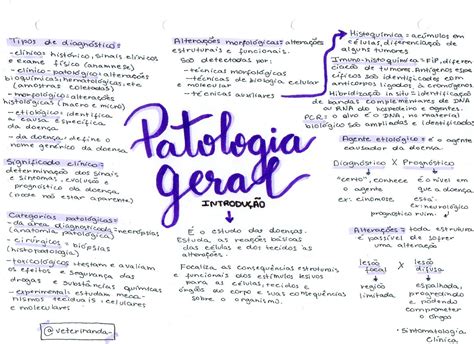 Tipos de diagnóstico:
-clínico histórico, sinais clínicos
e exame físico (anamnese)
-clínico-patológico: alterações
bioquímicas, hematológicas, etc
(amostras coletadas)
-morfológico: alterações
histológicas (macro e micro)
-etiológico: identifica
a causa específica
da doença
-da doença, define o
nome genérico da doença
Significado clínico:
determinação dos sinais
e sintomas, evolução e
prognóstico da doença
(pode não estar aparente)
Categorias patológicas:
-da área diagnosticada = necrópsias
(anatomia patológica)
-cirúrgicas = biópsias
(histopatologia)
-toxicológicas = testam e avaliam
os efeitos e segurança das
drogas e substâncias químicas
-experimental: estudam meca-
nismos teciduais, celulares
e moleculares
@veterinanda_
Alterações morfológicas: alterações
estruturais e funcionais.
São detectadas por:
→técnicas morfológicas
→técnicas de biologia celular
e molecular
→técnicas auxiliares
Patologia
geral
INTRODUÇÃO
É o estudo das doenças.
Estuda as reações básicas
das células e dos tecidos às
alterações.
Focaliza as consequências estruturais
e funcionais dos estímulos lesivos
para as células, tecidos e
órgãos do corpo e suas consequências
sobre o organismo.
Histoquímica = acúmulos em
células, diferenciação de
alguns tumores
Imuno-histoquímica = PIF, diferen
ciação de tumores. Antígenos espe
cíficos são identificados com
anticorpos ligados à cromógenos
Hibridização in situ = identificação
de bandas complementares de DNA
ou RNA do hospedeiro e agentes.
PCR: o alvo é o DNA, no material
biológico são ampliadas e identificadas
Agente etiológico = é o agente
causador da doença.
Diagnóstico X Prognóstico
"certo", conhece
o agente
ex: cinomose,
é o nível em
que a doença
está.
ex: neurológico
prognóstico ruim.
Alterações = toda estrutura
é passível de sofrer
uma alteração
lesão
focal
X
lesão
difusa
região
limitada.
espalhada,
progredindo
e podendo
comprometer
o órgão
•Sintomatologia
Clínica